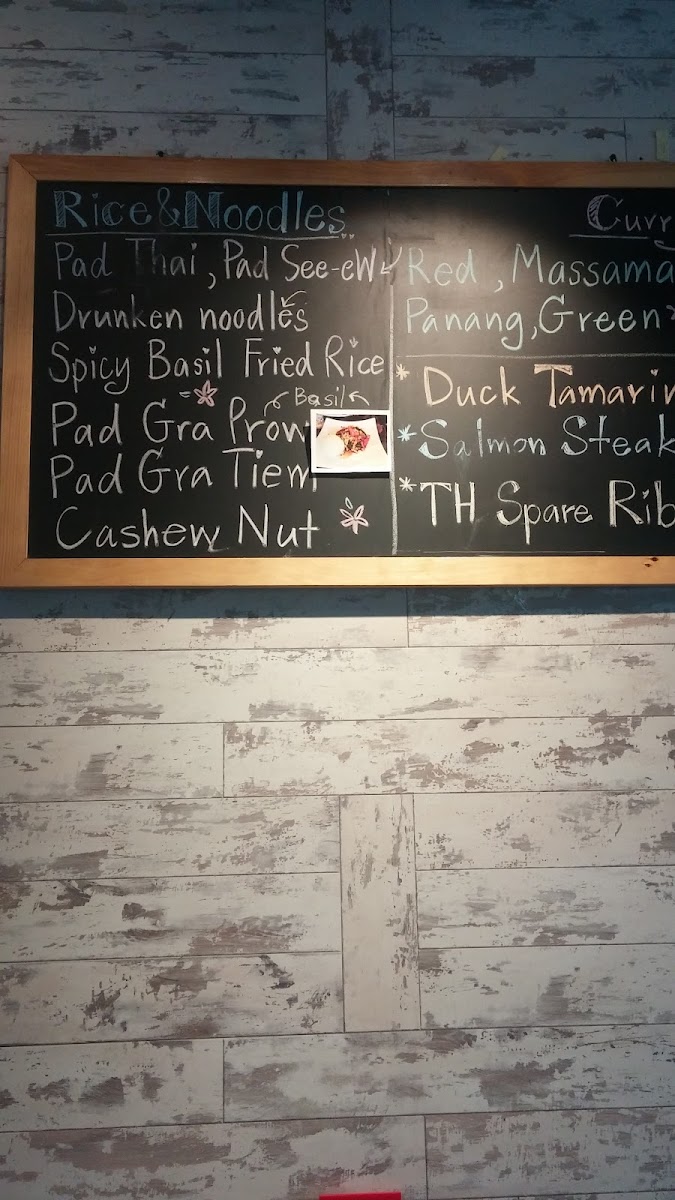 Rice&Noodles
Pad Thai, Pad See-eW
Drunken noodles
Spicy Basil Fried Rice
Basil
Pad Gra Prow
Pad Gra Tiem
Cashew Nut
Curr
Red, Massama
Panang, Green
* Duck Tamarin
* Salmon Steak
* TH Spare Rib